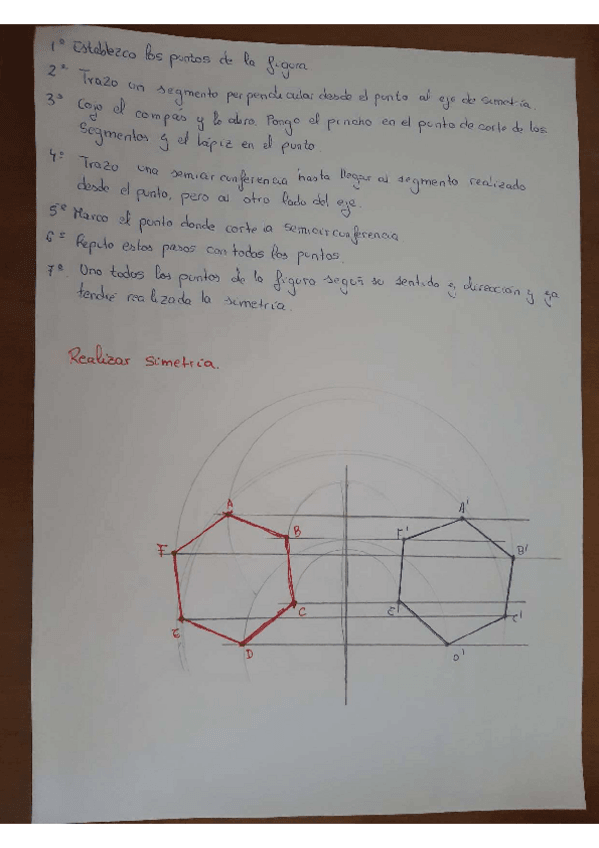 1º Establezco los puntos de la figura
2º Trazo un segmento perpendicular desde el punto al eje de simetría.
3º Cojo el compás y lo abro. Pongo el pincho en el punto de corte de los
segmentos y el lápiz en el punto.
4º Trazo una semicircunferencia hasta llegar al segmento realizado
desde el punto, pero al otro lado del eje.
5º Marco el punto donde corte la semicircunferencia
6º Repito estos pasos con todos los puntos.
7º Uno todos los puntos de la figura según su sentido y dirección y ya
tendré realizada la simetría.
Realizar simetría.
A
A'
B
F'
F
B'
C
E'
E
C'
D
D'